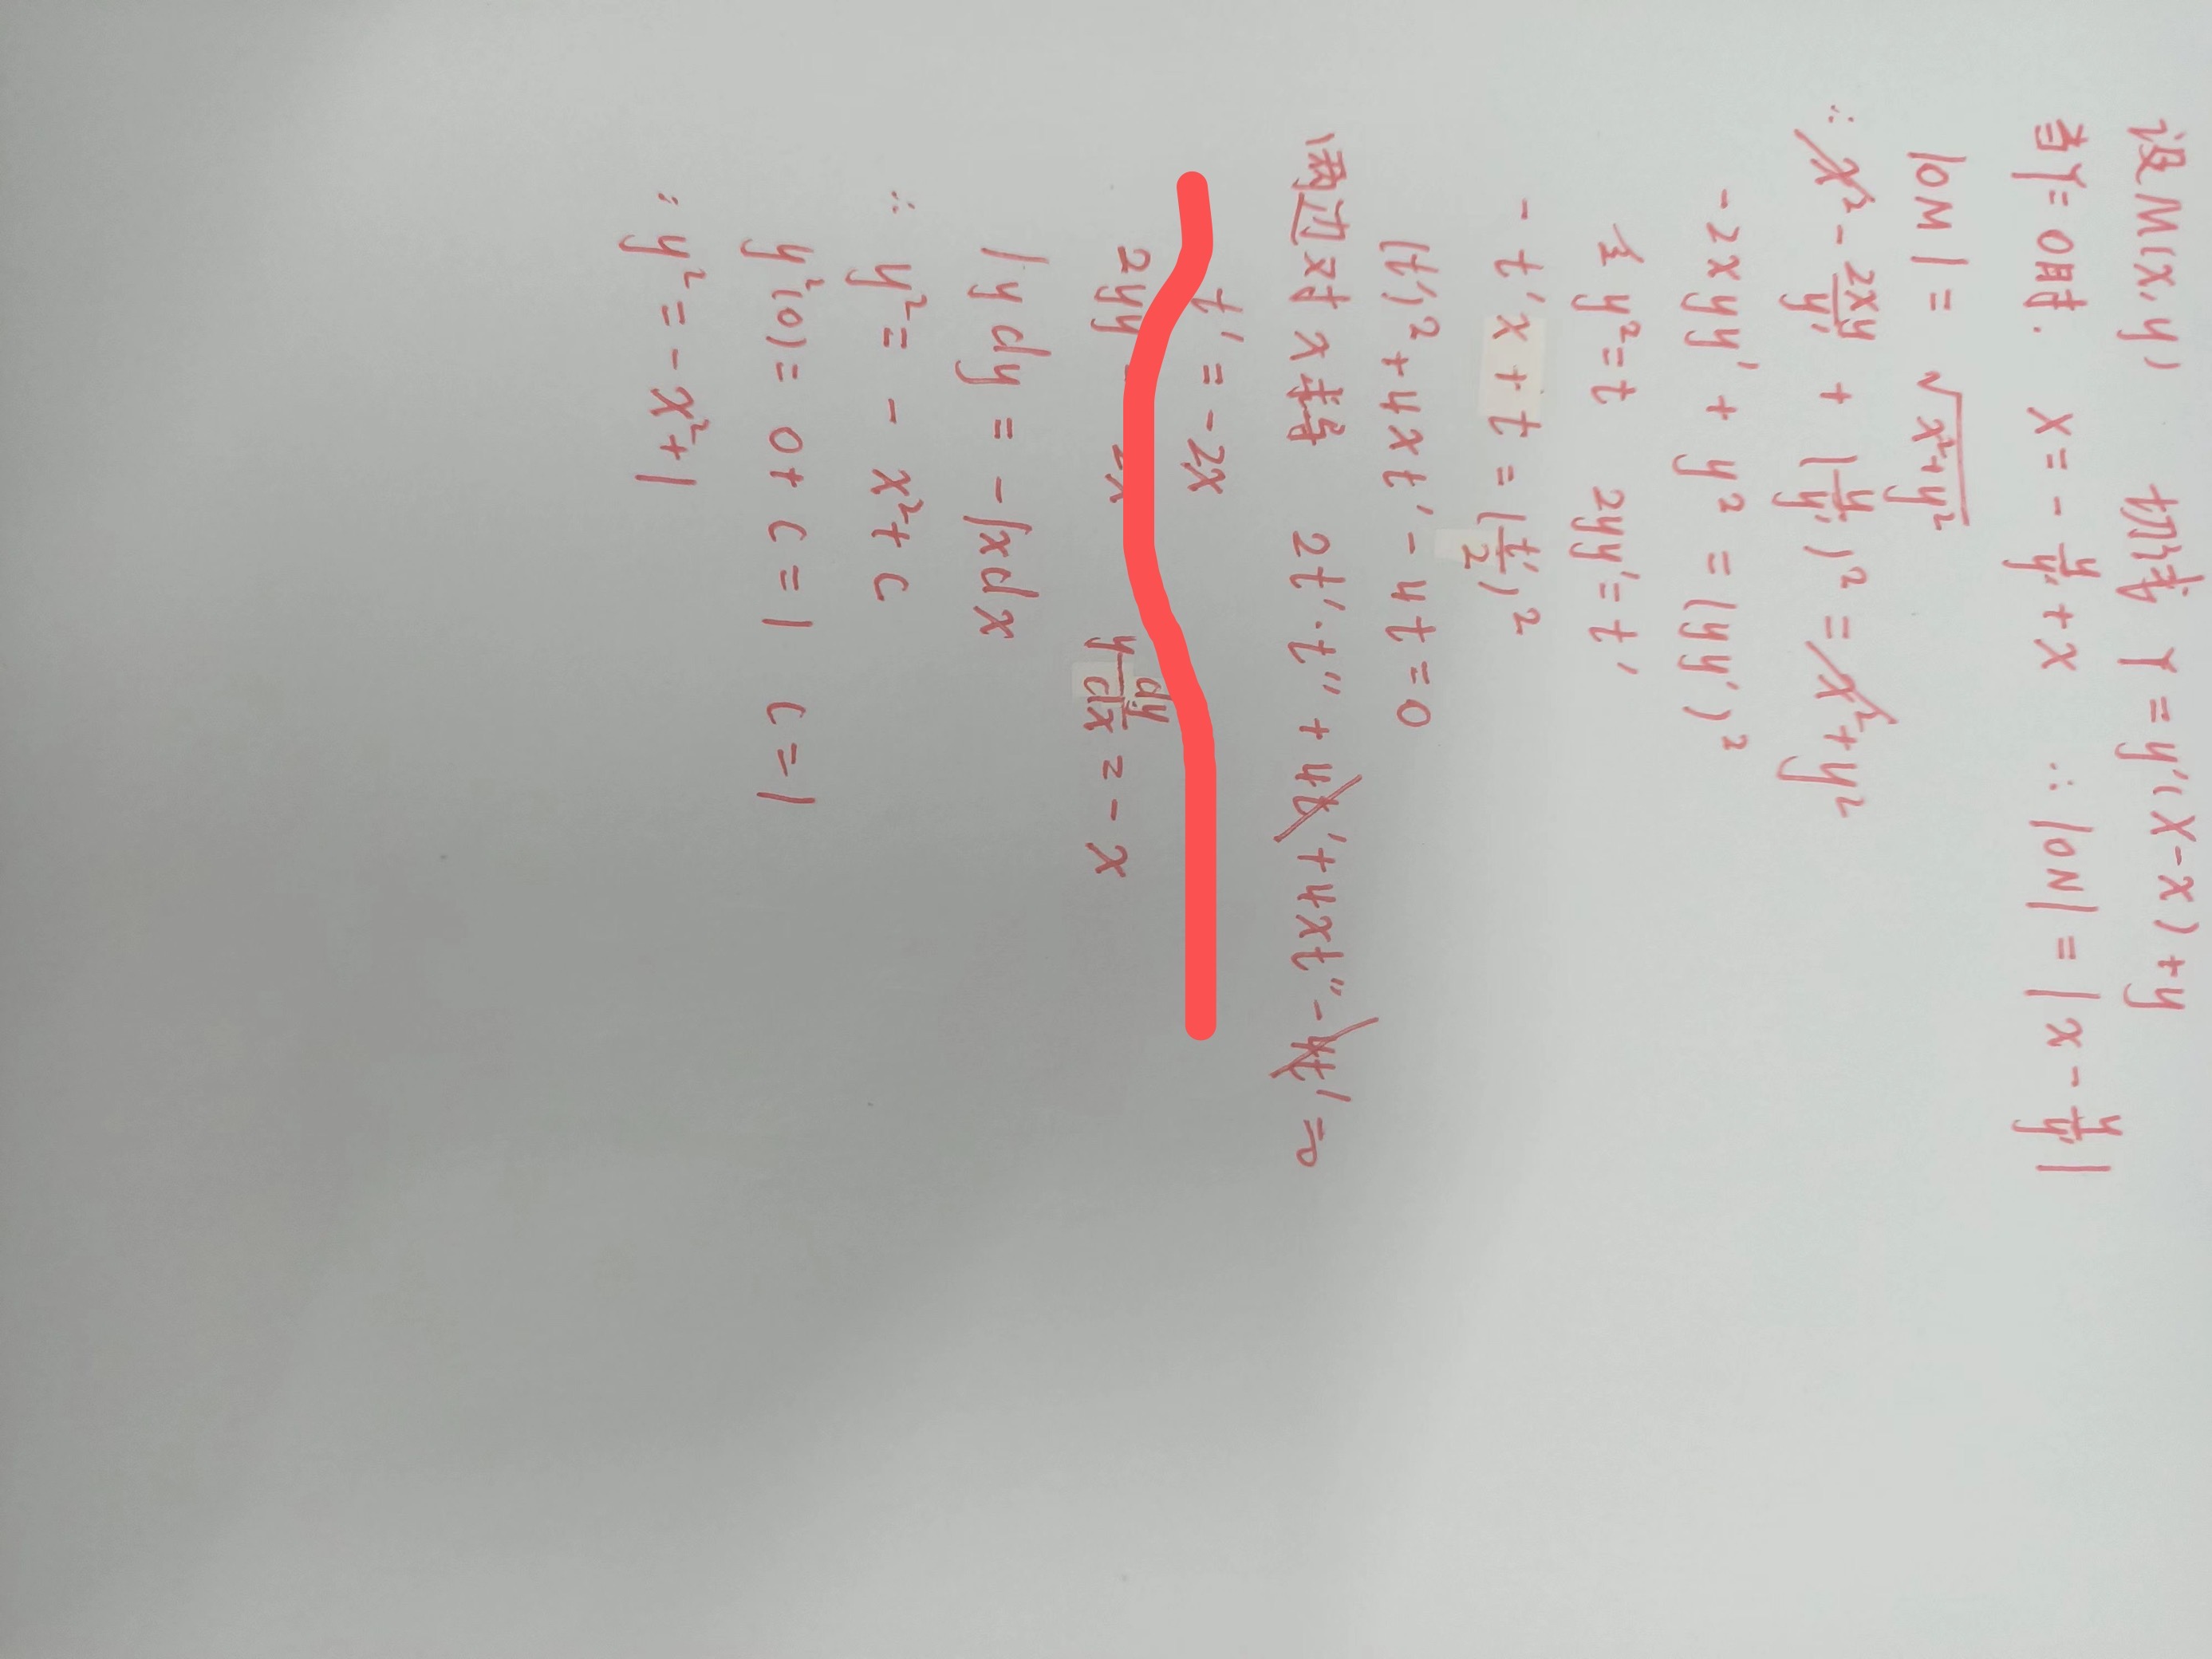 设M(x,y) 切线 Y=y'(X-x)+y
当Y=0时. X=-y/y'+x ∴|ON|=|x-y/y'|
|OM|=√(x²+y²)
∴x²-2xy/y'+(y/y')²=x²+y²
-2xyy'+y²=(yy')²
令y²=t 2yy'=t'
-t'x+t=(t'/2)²
(t')²+4xt'-4t=0
两边对x求导 2t'·t''+4t'+4xt''-4t'=0
t'=-2x
2yy 2x y dy/dx=-x
∫ydy=-∫xdx
∴y²=-x²+C
y²(0)=0+C=1 C=1
∴y²=-x²+1